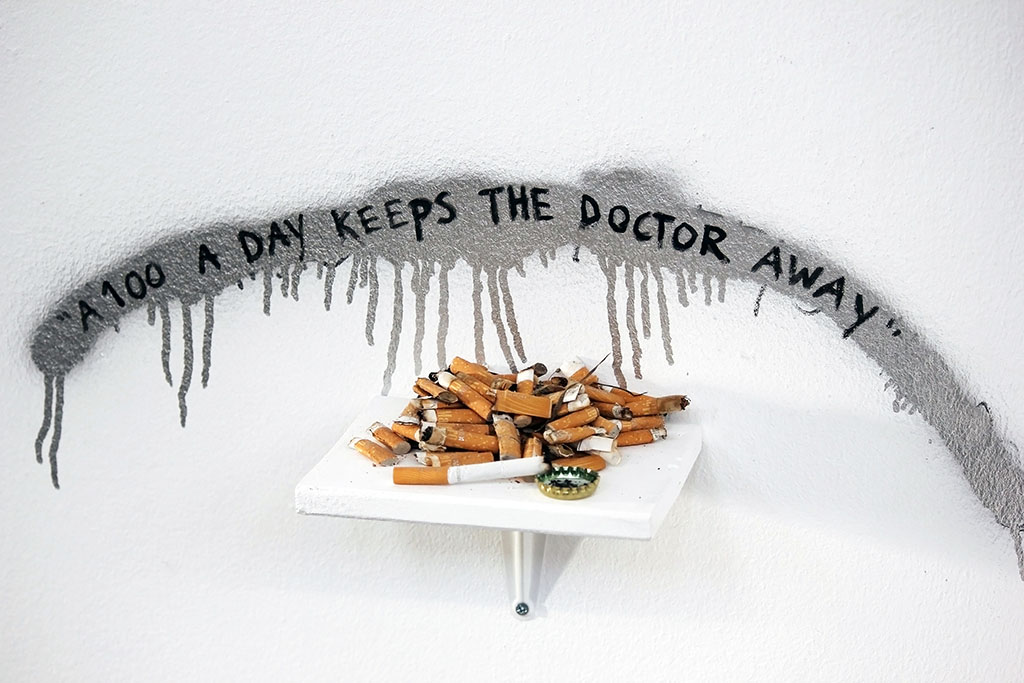 "A 100 A DAY KEEPS THE DOCTOR AWAY"